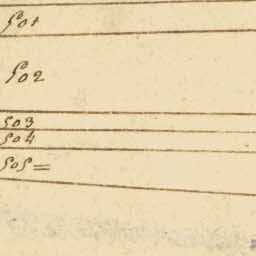 501
502
503
504
505=